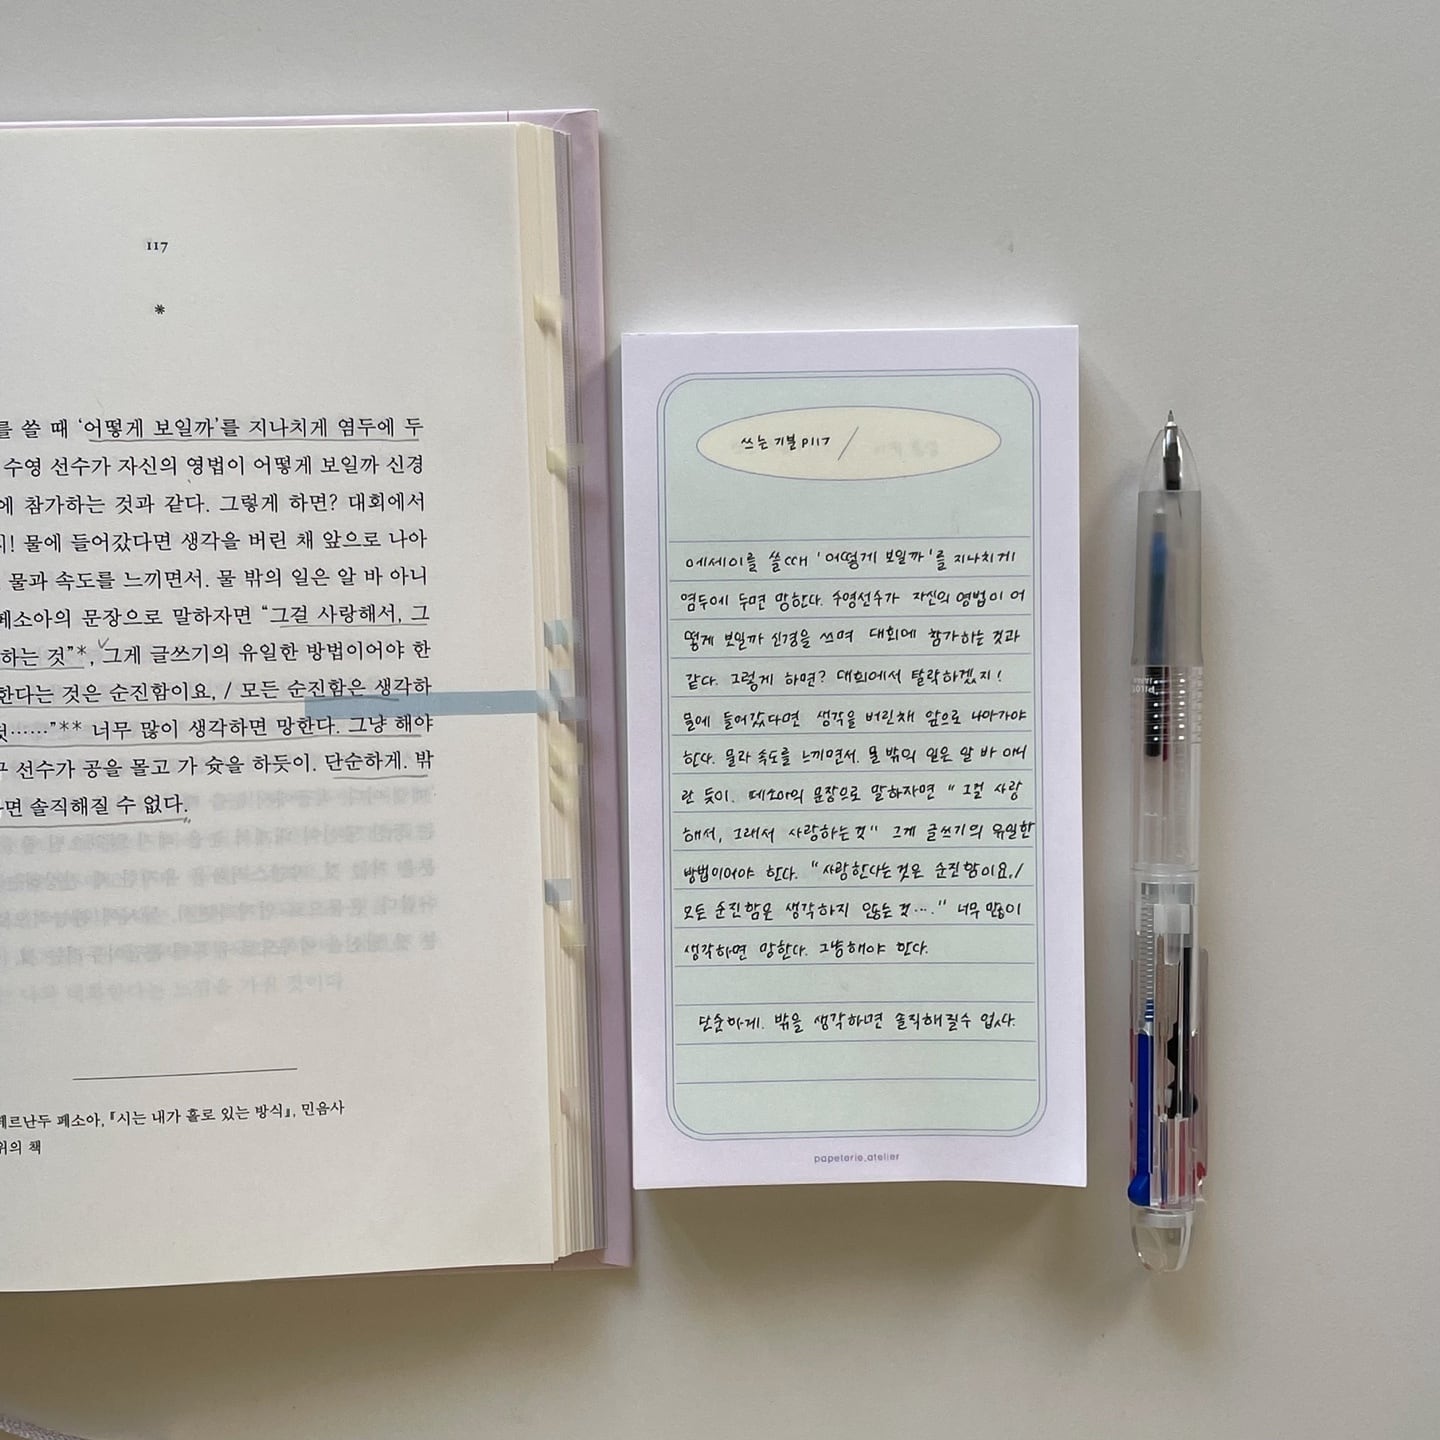 117
*
를 쓸 때 '어떻게 보일까'를 지나치게 염두에 두
수영 선수가 자신의 영법이 어떻게 보일까 신경
에 참가하는 것과 같다. 그렇게 하면? 대회에서
지! 물에 들어갔다면 생각을 버린 채 앞으로 나아
물과 속도를 느끼면서. 물 밖의 일은 알 바 아니
페소아의 문장으로 말하자면 “그걸 사랑해서, 그
하는 것”*, 그게 글쓰기의 유일한 방법이어야 한
한다는 것은 순진함이요, / 모든 순진함은 생각하
것……”** 너무 많이 생각하면 망한다. 그냥 해야
구 선수가 공을 몰고 가 슛을 하듯이. 단순하게. 밖
하면 솔직해질 수 없다.
페르난두 페소아, 『시는 내가 홀로 있는 방식』, 민음사
위의 책
쓰는 기분 P117 /
에세이를 쓸 때 '어떻게 보일까'를 지나치게
염두에 두면 망한다. 수영선수가 자신의 영법이 어
떻게 보일까 신경을 쓰며 대회에 참가하는 것과
같다. 그렇게 하면? 대회에서 탈락하겠지!
물에 들어갔다면 생각을 버린채 앞으로 나아가야
한다. 물과 속도를 느끼면서. 물 밖의 일은 알 바 아니
란 듯이. 페소아의 문장으로 말하자면 " 그걸 사랑
해서, 그래서 사랑하는 것" 그게 글쓰기의 유일한
방법이어야 한다. "사랑한다는 것은 순진함이요,/
모든 순진함은 생각하지 않는 것...." 너무 많이
생각하면 망한다. 그냥해야 한다.
단순하게. 밖을 생각하면 솔직해질수 없다.
papeterie_atelier
PILOT
JAPAN